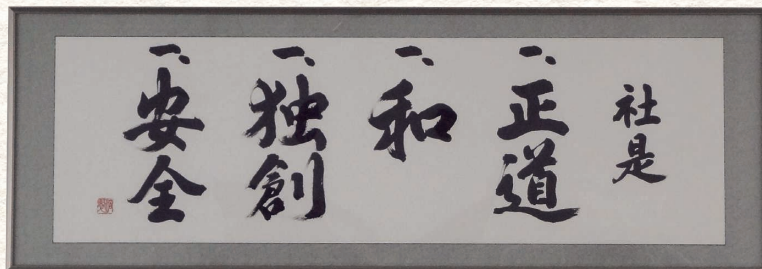 社是
一、正道
一、和
一、独創
一、安全